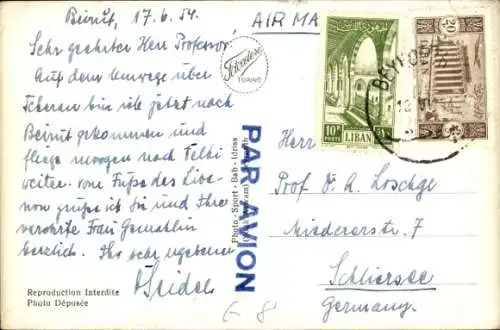 Beirut, 17.6.54.
AIR MA
Sehr geehrter Herr Professor,
Auf dem Umwege über
Teheran bin ich jetzt nach
Beirut gekommen und
fliege morgen nach
weiter. Vom Fusse des Liba-
non grüsse ich Sie und Ihre
verehrte Frau Gemahlin
herzlich. Ihr sehr ergebener
Seidel
Reproduction Interdite
Photo Déposée
TORINO
Photo - Sport - Bab - Idriss
PAR AVION
10P
LIBAN
20
BEYROUTH
Herrn
Prof. Dr. A. Loschge
7
Schliersee
Germany.